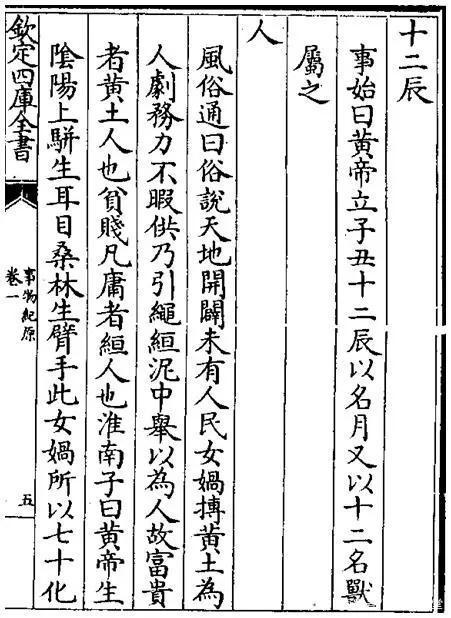 十二辰
事始曰黄帝立子丑十二辰以名月又以十二名獸
屬之
人
風俗通曰俗說天地開闢未有人民女媧摶黄土為
人劇務力不暇供乃引繩絙泥中舉以為人故富貴
者黄土人也貧賤凡庸者絙人也淮南子曰黄帝生
陰陽上駢生耳目桑林生臂手此女媧所以七十化
欽定四庫全書
事物紀原
卷一
五